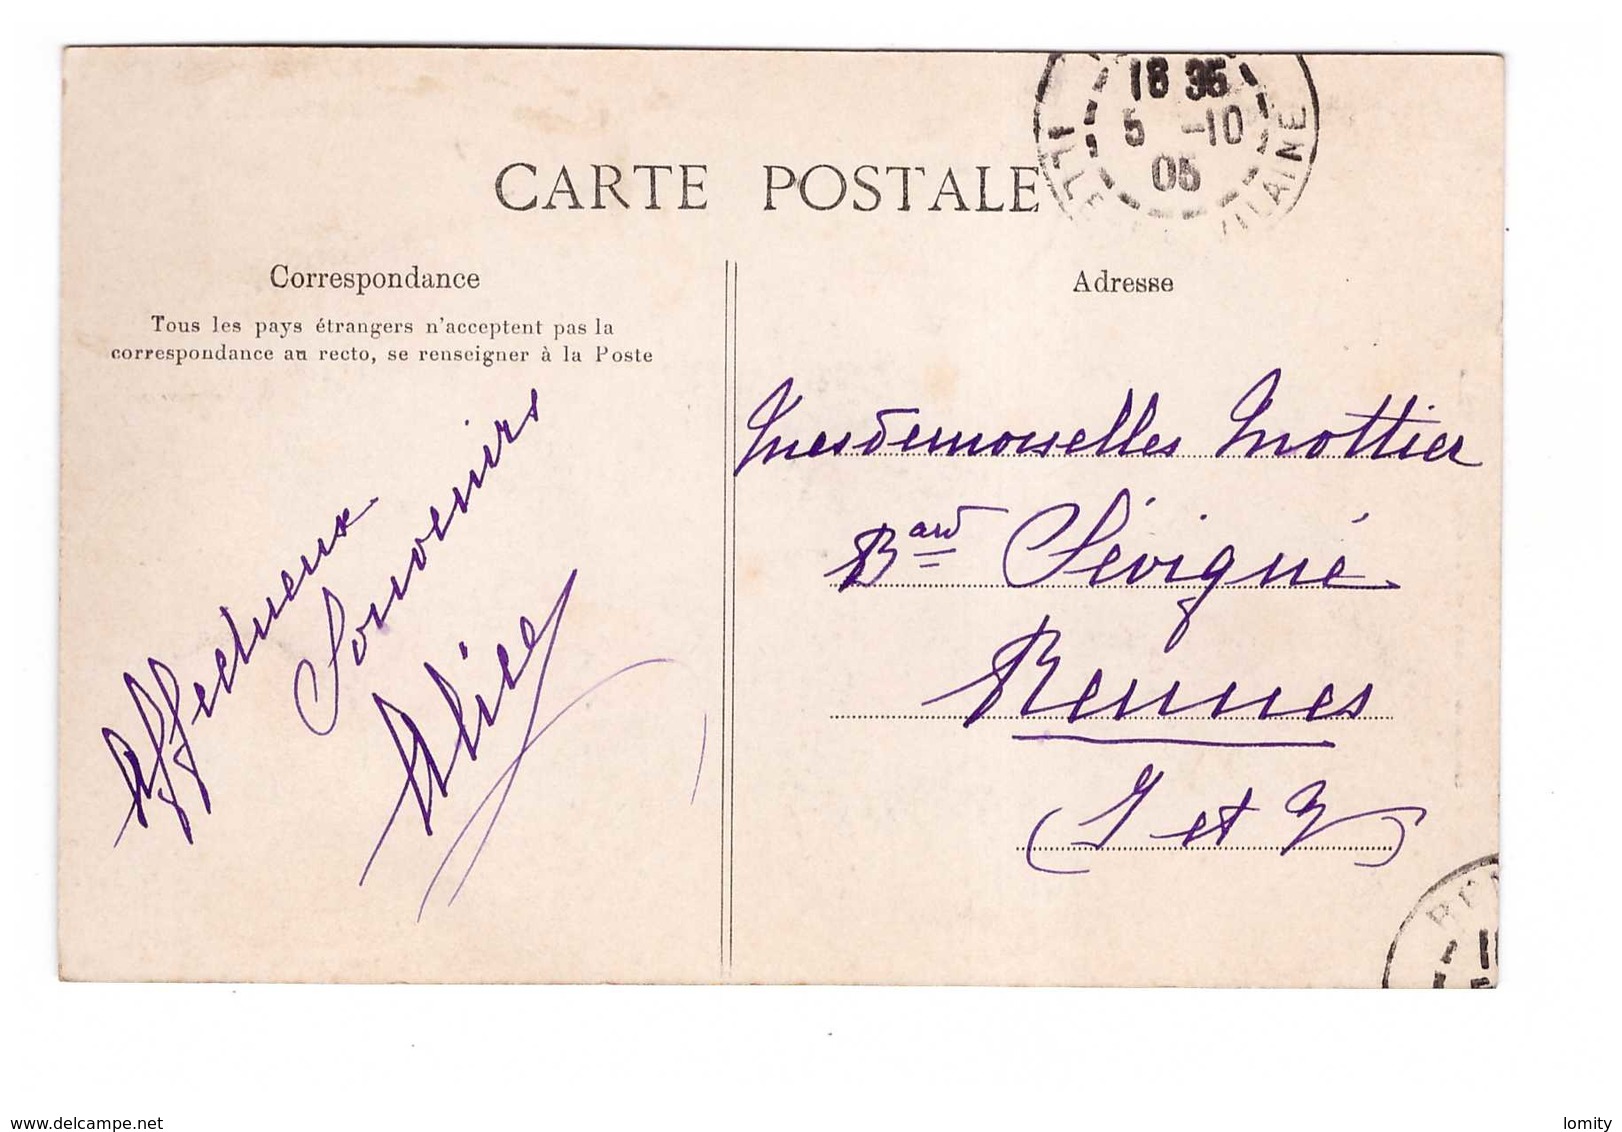 18 35
5 -10
05
ILLE VILAINE
CARTE POSTALE
Correspondance
Tous les pays étrangers n'acceptent pas la
correspondance au recto, se renseigner à la Poste
Affectueux
Souvenirs
Alice
Adresse
Mesdemoiselles Mottier
Bard Sévigné
Rennes
(I et V)
REN
www.delcampe.net
lomity